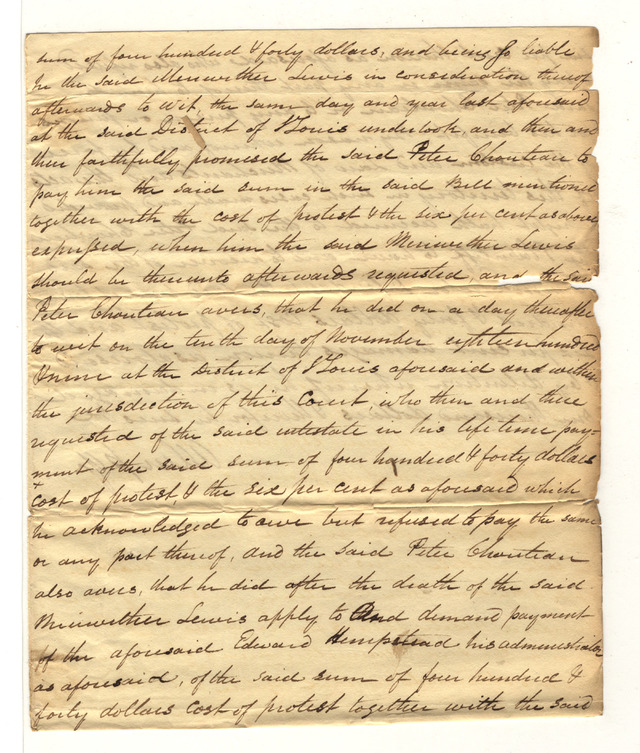 sum of four hundred & forty dollars, and being so liable
he the said Meriwether Lewis in consideration thereof
afterwards to wit, the same day and year last aforesaid
at the said District of St Louis undertook, and then and
there faithfully promised the said Peter Chouteau to
pay him the said sum in the said Bill mentioned
together with the cost of protest & the six per cent as above
expressed, when him the said Meriwether Lewis
should be thereunto afterwards requested, and the said
Peter Chouteau avers, that he did on a day thereafter
to wit on the tenth day of November eighteen hundred
& nine at the District of St Louis aforesaid and within
the jurisdection of this Court, who then and there
requested of the said intestate in his life time pay-
ment of the said sum of four hundred & forty dollars
cost of protest, & the six per cent as aforesaid which
he acknowledged to owe but refused to pay the same
or any part thereof, and the said Peter Chouteau
also avers, that he did after the death of the said
Meriwether Lewis apply to And demand payment
of the aforesaid Edward Hempstead his administrator
as aforesaid, of the said sum of four hundred &
forty dollars cost of protest together with the said